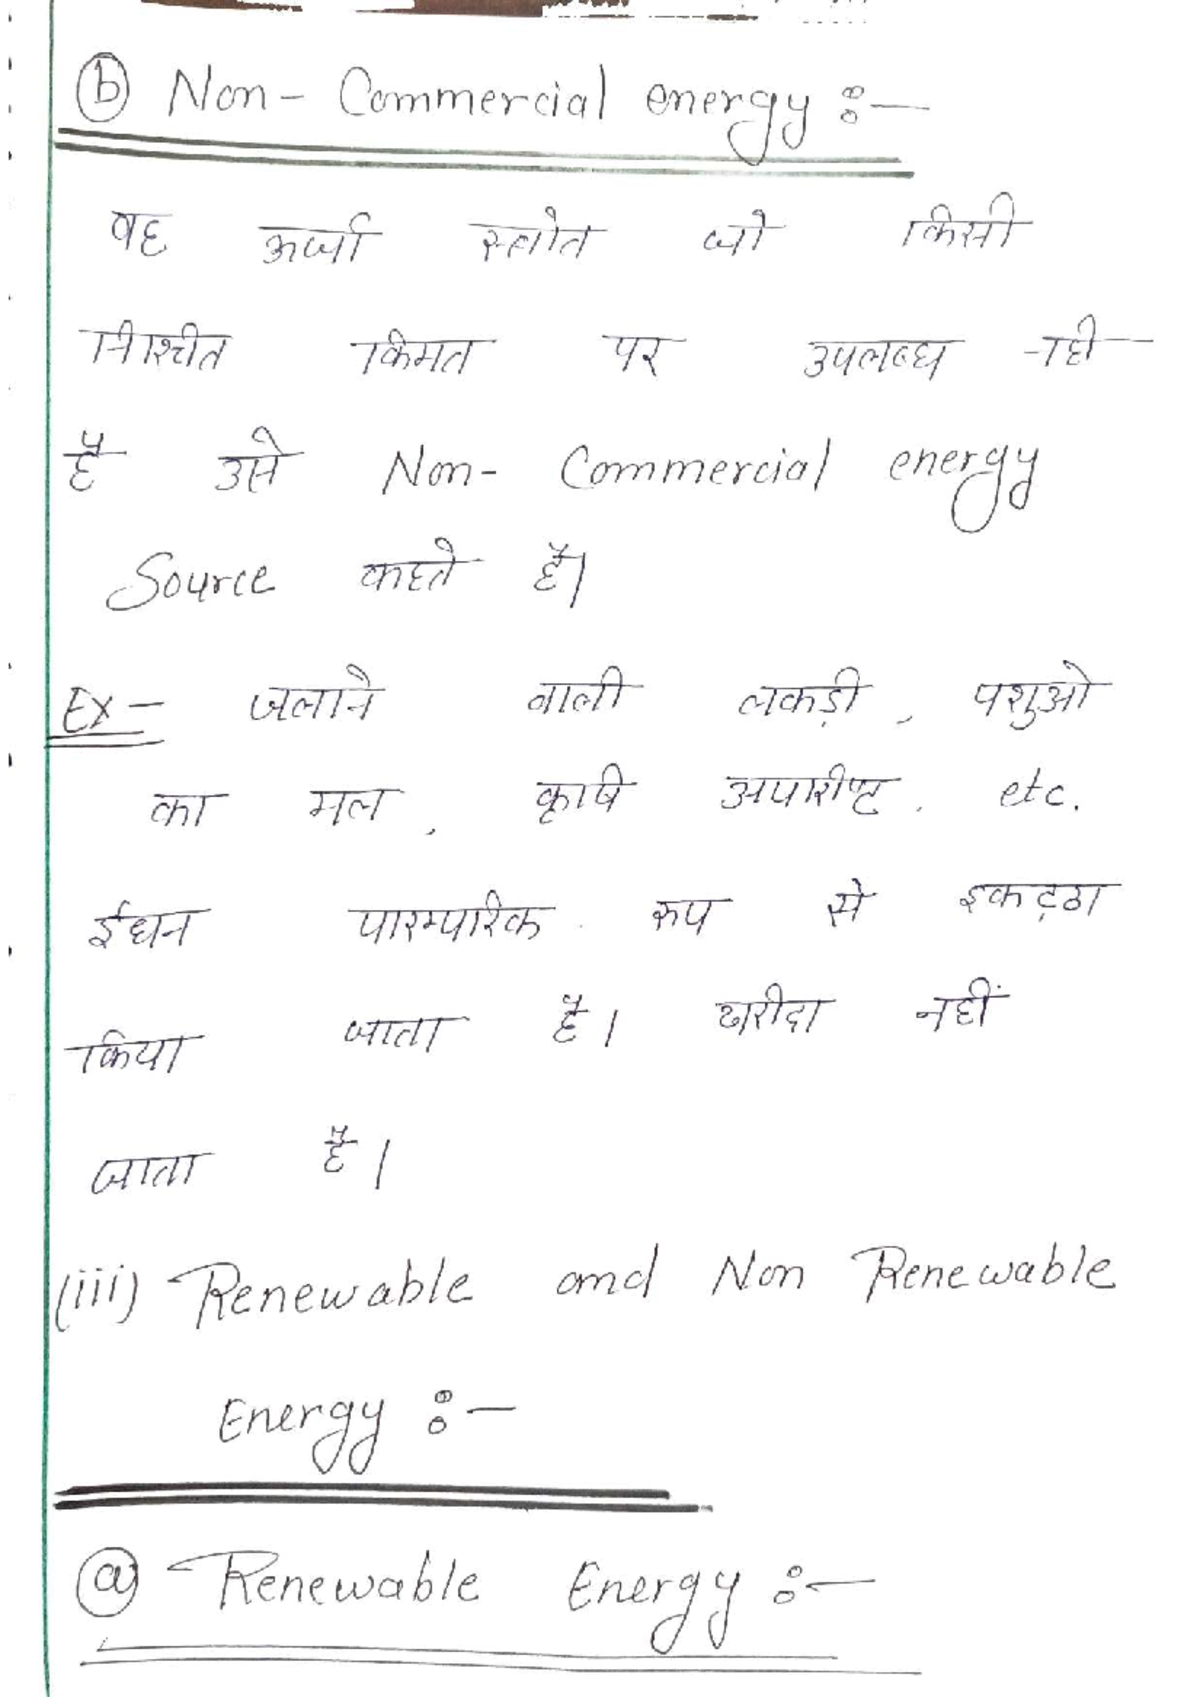 (b) Non- Commercial energy :-
वह ऊर्जा स्त्रोत जो किसी
निश्चीत किमत पर उपलब्ध नही
है उसे Non- Commercial energy
Source कहते है।
Ex- जलाने वाली लकड़ी, पशुओ
का मल, कृषि अपशीष्ट, etc.
ईधन पारम्पारिक रूप से इकट्ठा
किया जाता है। खरीदा नहीं
जाता है।
(iii) Renewable and Non Renewable
Energy :-
(a) Renewable Energy :-